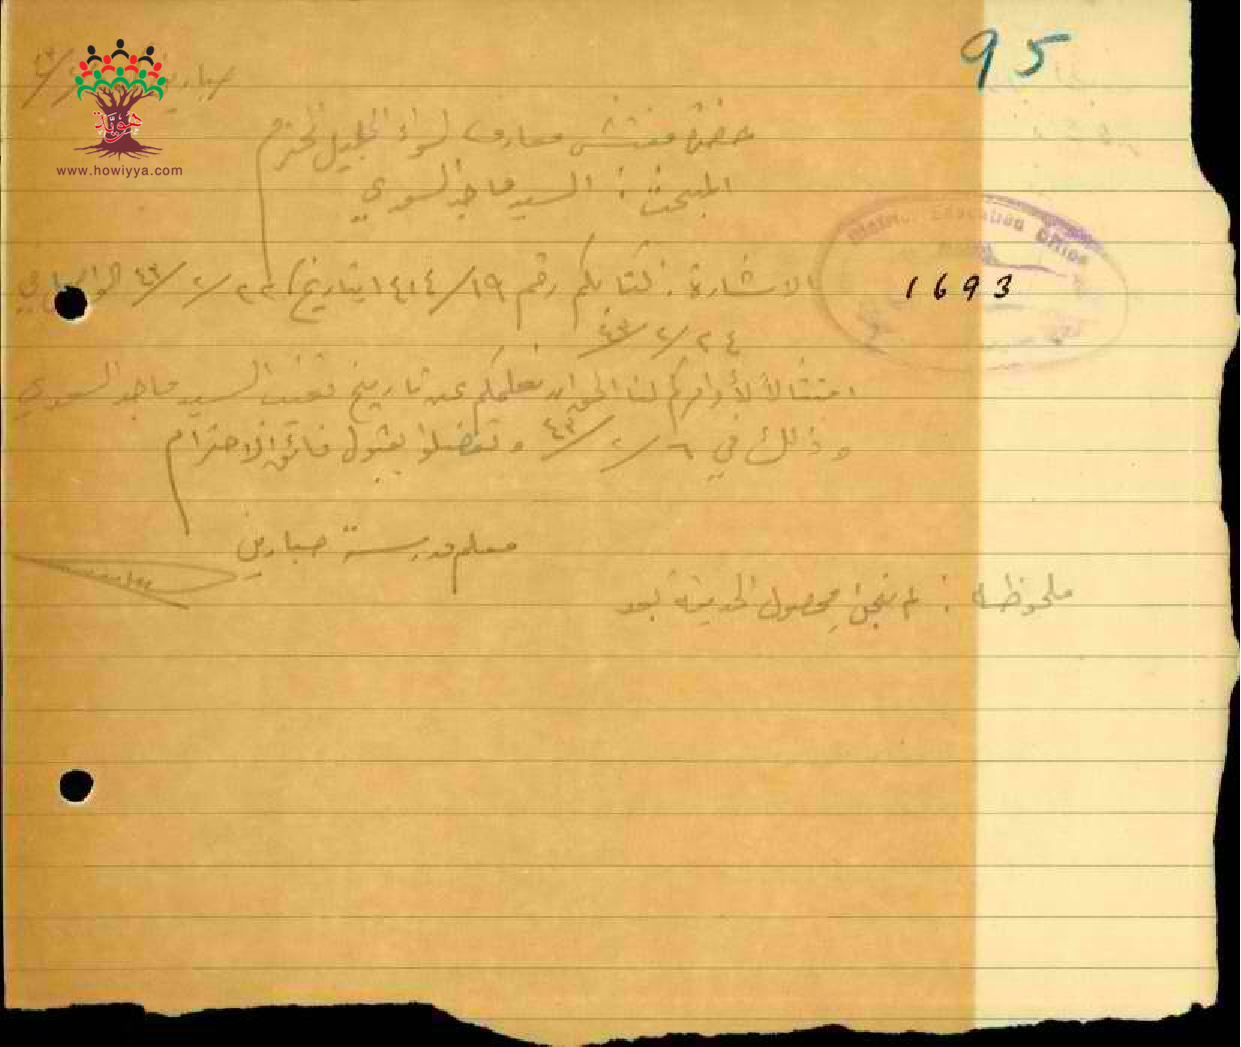 95
صبارين
هوية
www.howiyya.com
حضرة مفتش معارف لواء الجليل المحترم
المبحث : السيد ماجد السعدي
District Education Office
1693
الاشارة : كتابكم رقم ١٤١٤/١٩ بتاريخ ٢٣/٢/٤٣ الواصل في
٢٤/٢/٤٣
امتثالاً لأوامركم لنا الحق ان نعلمكم عن تاريخ تغيب السيد ماجد السعدي
وذلك في ٦/٢/٤٣ وتفضلوا بقبول فائق الاحترام
معلم مدرسة صبارين
ملحوظة : لم نجنِ محصول الحديقة بعد